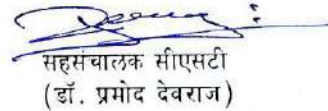 सहसंचालक सीएसटी
(डॉ. प्रमोद देवराज)